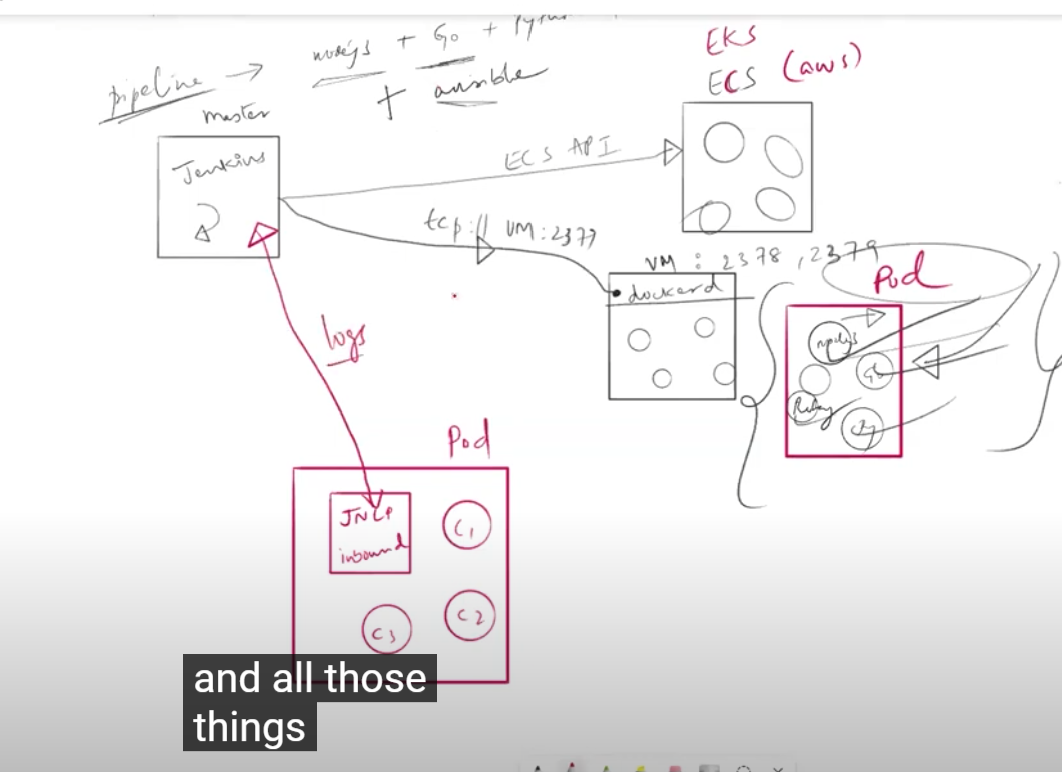 pipeline → nodejs + Go + Python
+ ansible
master
Jenkins
EKS
ECS (aws)
ECS API
tcp:// VM:2377
VM : 2378, 2379
dockerd
Pod
nodejs
Go
Ruby
Py
logs
Pod
JNLP
inbound
C1
C2
C3
and all those
things